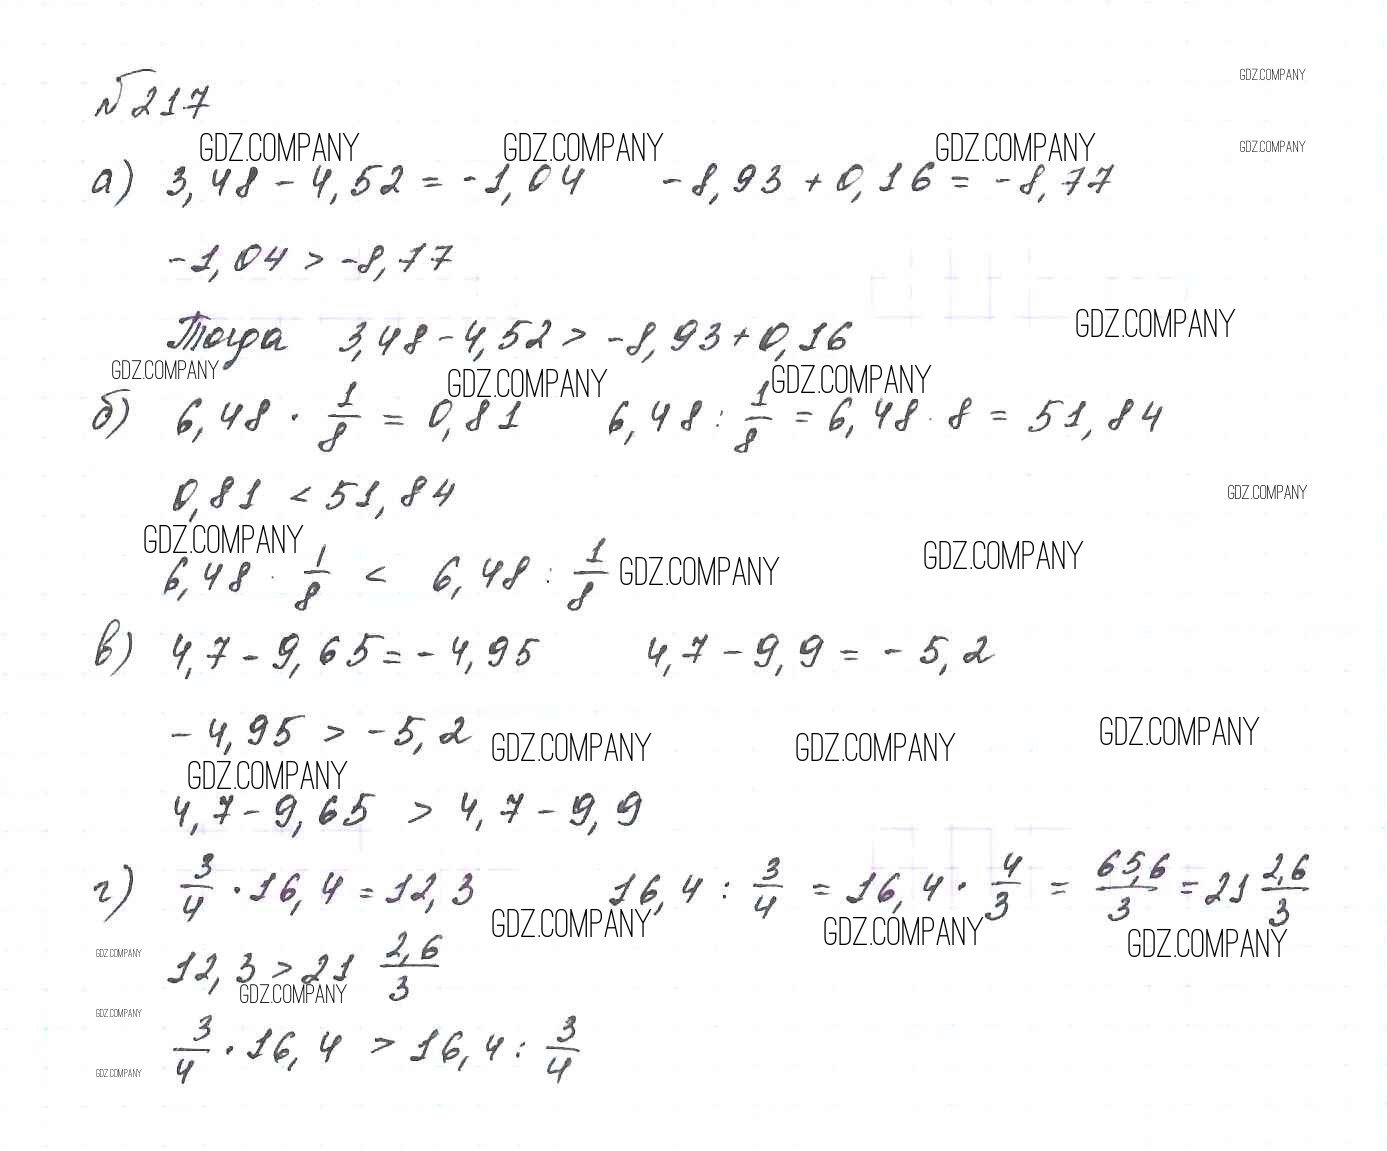 GDZ.COMPANY
№217
GDZ.COMPANY GDZ.COMPANY GDZ.COMPANY GDZ.COMPANY
а) 3,48 - 4,52 = -1,04 -8,93 + 0,16 = -8,77
-1,04 > -8,77
GDZ.COMPANY
Тогда 3,48 - 4,52 > -8,93 + 0,16
GDZ.COMPANY GDZ.COMPANY GDZ.COMPANY
б) 6,48 · 1/8 = 0,81 6,48 : 1/8 = 6,48 · 8 = 51,84
0,81 < 51,84 GDZ.COMPANY
GDZ.COMPANY GDZ.COMPANY
6,48 · 1/8 < 6,48 : 1/8 GDZ.COMPANY
в) 4,7 - 9,65 = -4,95 4,7 - 9,9 = -5,2
-4,95 > -5,2 GDZ.COMPANY GDZ.COMPANY GDZ.COMPANY
GDZ.COMPANY
4,7 - 9,65 > 4,7 - 9,9
г) 3/4 · 16,4 = 12,3 16,4 : 3/4 = 16,4 · 4/3 = 65,6/3 = 21 2,6/3
GDZ.COMPANY GDZ.COMPANY GDZ.COMPANY
GDZ.COMPANY
12,3 > 21 2,6/3
GDZ.COMPANY
GDZ.COMPANY
3/4 · 16,4 > 16,4 : 3/4
GDZ.COMPANY